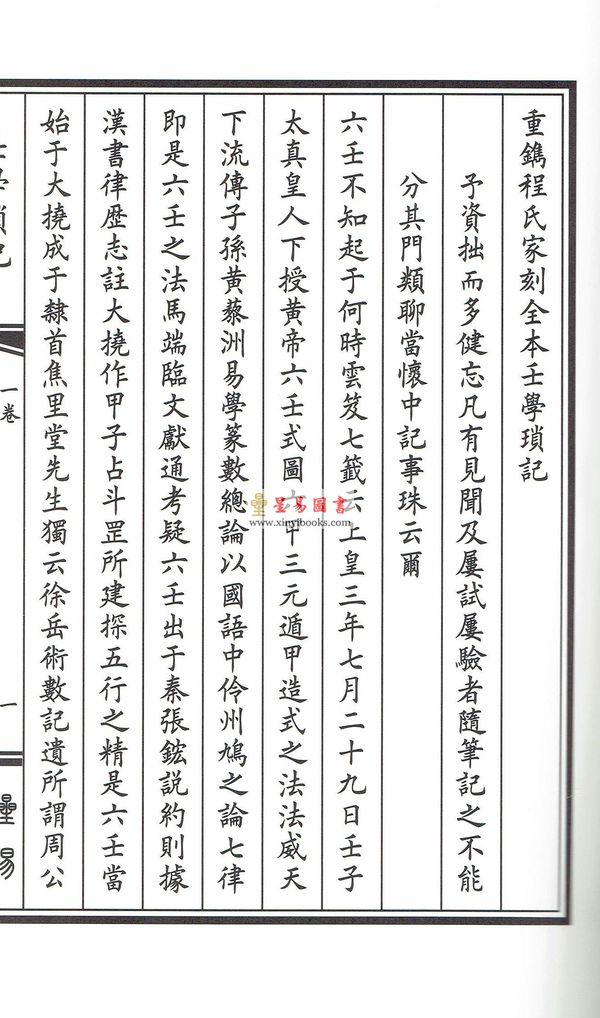 重鐫程氏家刻全本壬學瑣記
予資拙而多健忘凡有見聞及屢試屢驗者隨筆記之不能
分其門類聊當懷中記事珠云爾
六壬不知起于何時雲笈七籤云上皇三年七月二十九日壬子
太真皇人下授黃帝六壬式圖六甲三元遁甲造式之法法威天
下流傳子孫黃藜洲易學篆數總論以國語中伶州鳩之論七律
即是六壬之法馬端臨文獻通考疑六壬出于秦張鋐說約則據
漢書律歷志註大撓作甲子占斗罡所建探五行之精是六壬當
始于大撓成于隸首焦里堂先生獨云徐岳術數記遺所謂周公
壬學瑣記
一卷
一
星易
星易圖書
www.xinyibooks.com